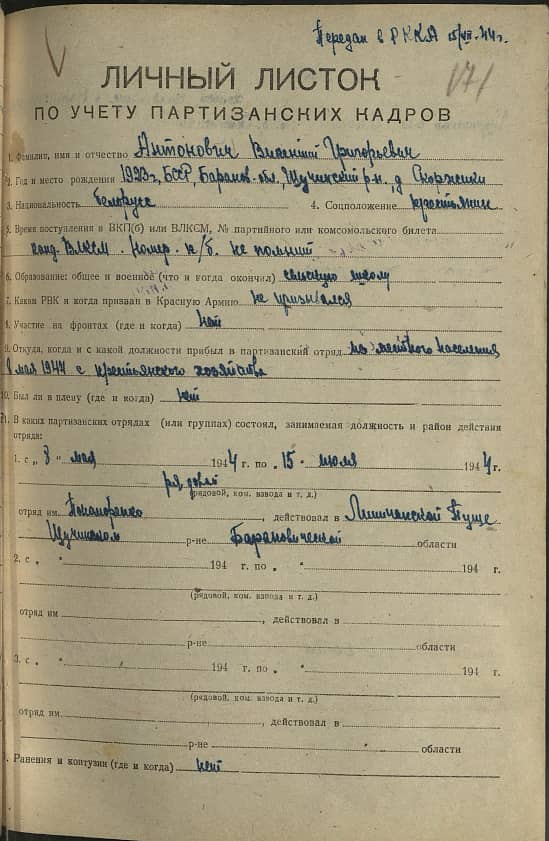 Передан в РККА 15/VII-44г.
171
ЛИЧНЫЙ ЛИСТОК
ПО УЧЕТУ ПАРТИЗАНСКИХ КАДРОВ
1. Фамилия, имя и отчество Антонович Викентий Григорьевич
2. Год и место рождения 1923г, БССР, Баранов. обл. Щучинский р-н. д Скоржики
3. Национальность белорусс 4. Соцположение крестьянин
5. Время поступления в ВКП(б) или ВЛКСМ, № партийного или комсомольского билета
канд. ВЛКСМ. Номер к/б. не помнит
6. Образование: общее и военное (что и когда окончил) сельскую школу
7. Каким РВК и когда призван в Красную Армию не призывался
8. Участие на фронтах (где и когда) нет
9. Откуда, когда и с какой должности прибыл в партизанский отряд из местного населения
8 мая 1944 с крестьянского хозяйства
10. Был ли в плену (где и когда) нет
11. В каких партизанских отрядах (или группах) состоял, занимаемая должность и район действия
отряда:
1. с „ 8 " мая 1944 г. по „ 15 " июля 1944 г.
рядовой
(рядовой, ком. взвода и т. д.)
отряд им. Пономоренко, действовал в Липичанской Пуще
Щучинском р-не Барановической области
2. с „ " 194 г. по „ " 194 г.
(рядовой, ком. взвода и т. д.)
отряд им , действовал в
р-не области
3. с „ " 194 г. по „ " 194 г.
(рядовой, ком. взвода и т. д.)
отряд им. , действовал в
р-не области
Ранения и контузии (где и когда) нет